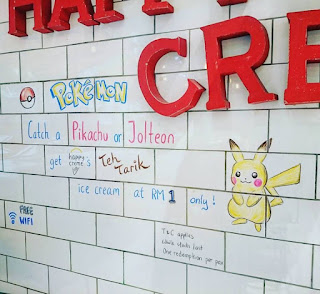 HAPP
CRE
POKéMON
Catch a Pikachu or Jolteon
get happy creme's Teh Tarik
ice cream at RM 1 only!
FREE WIFI
T&C applies
while stocks last
One redemption per pax